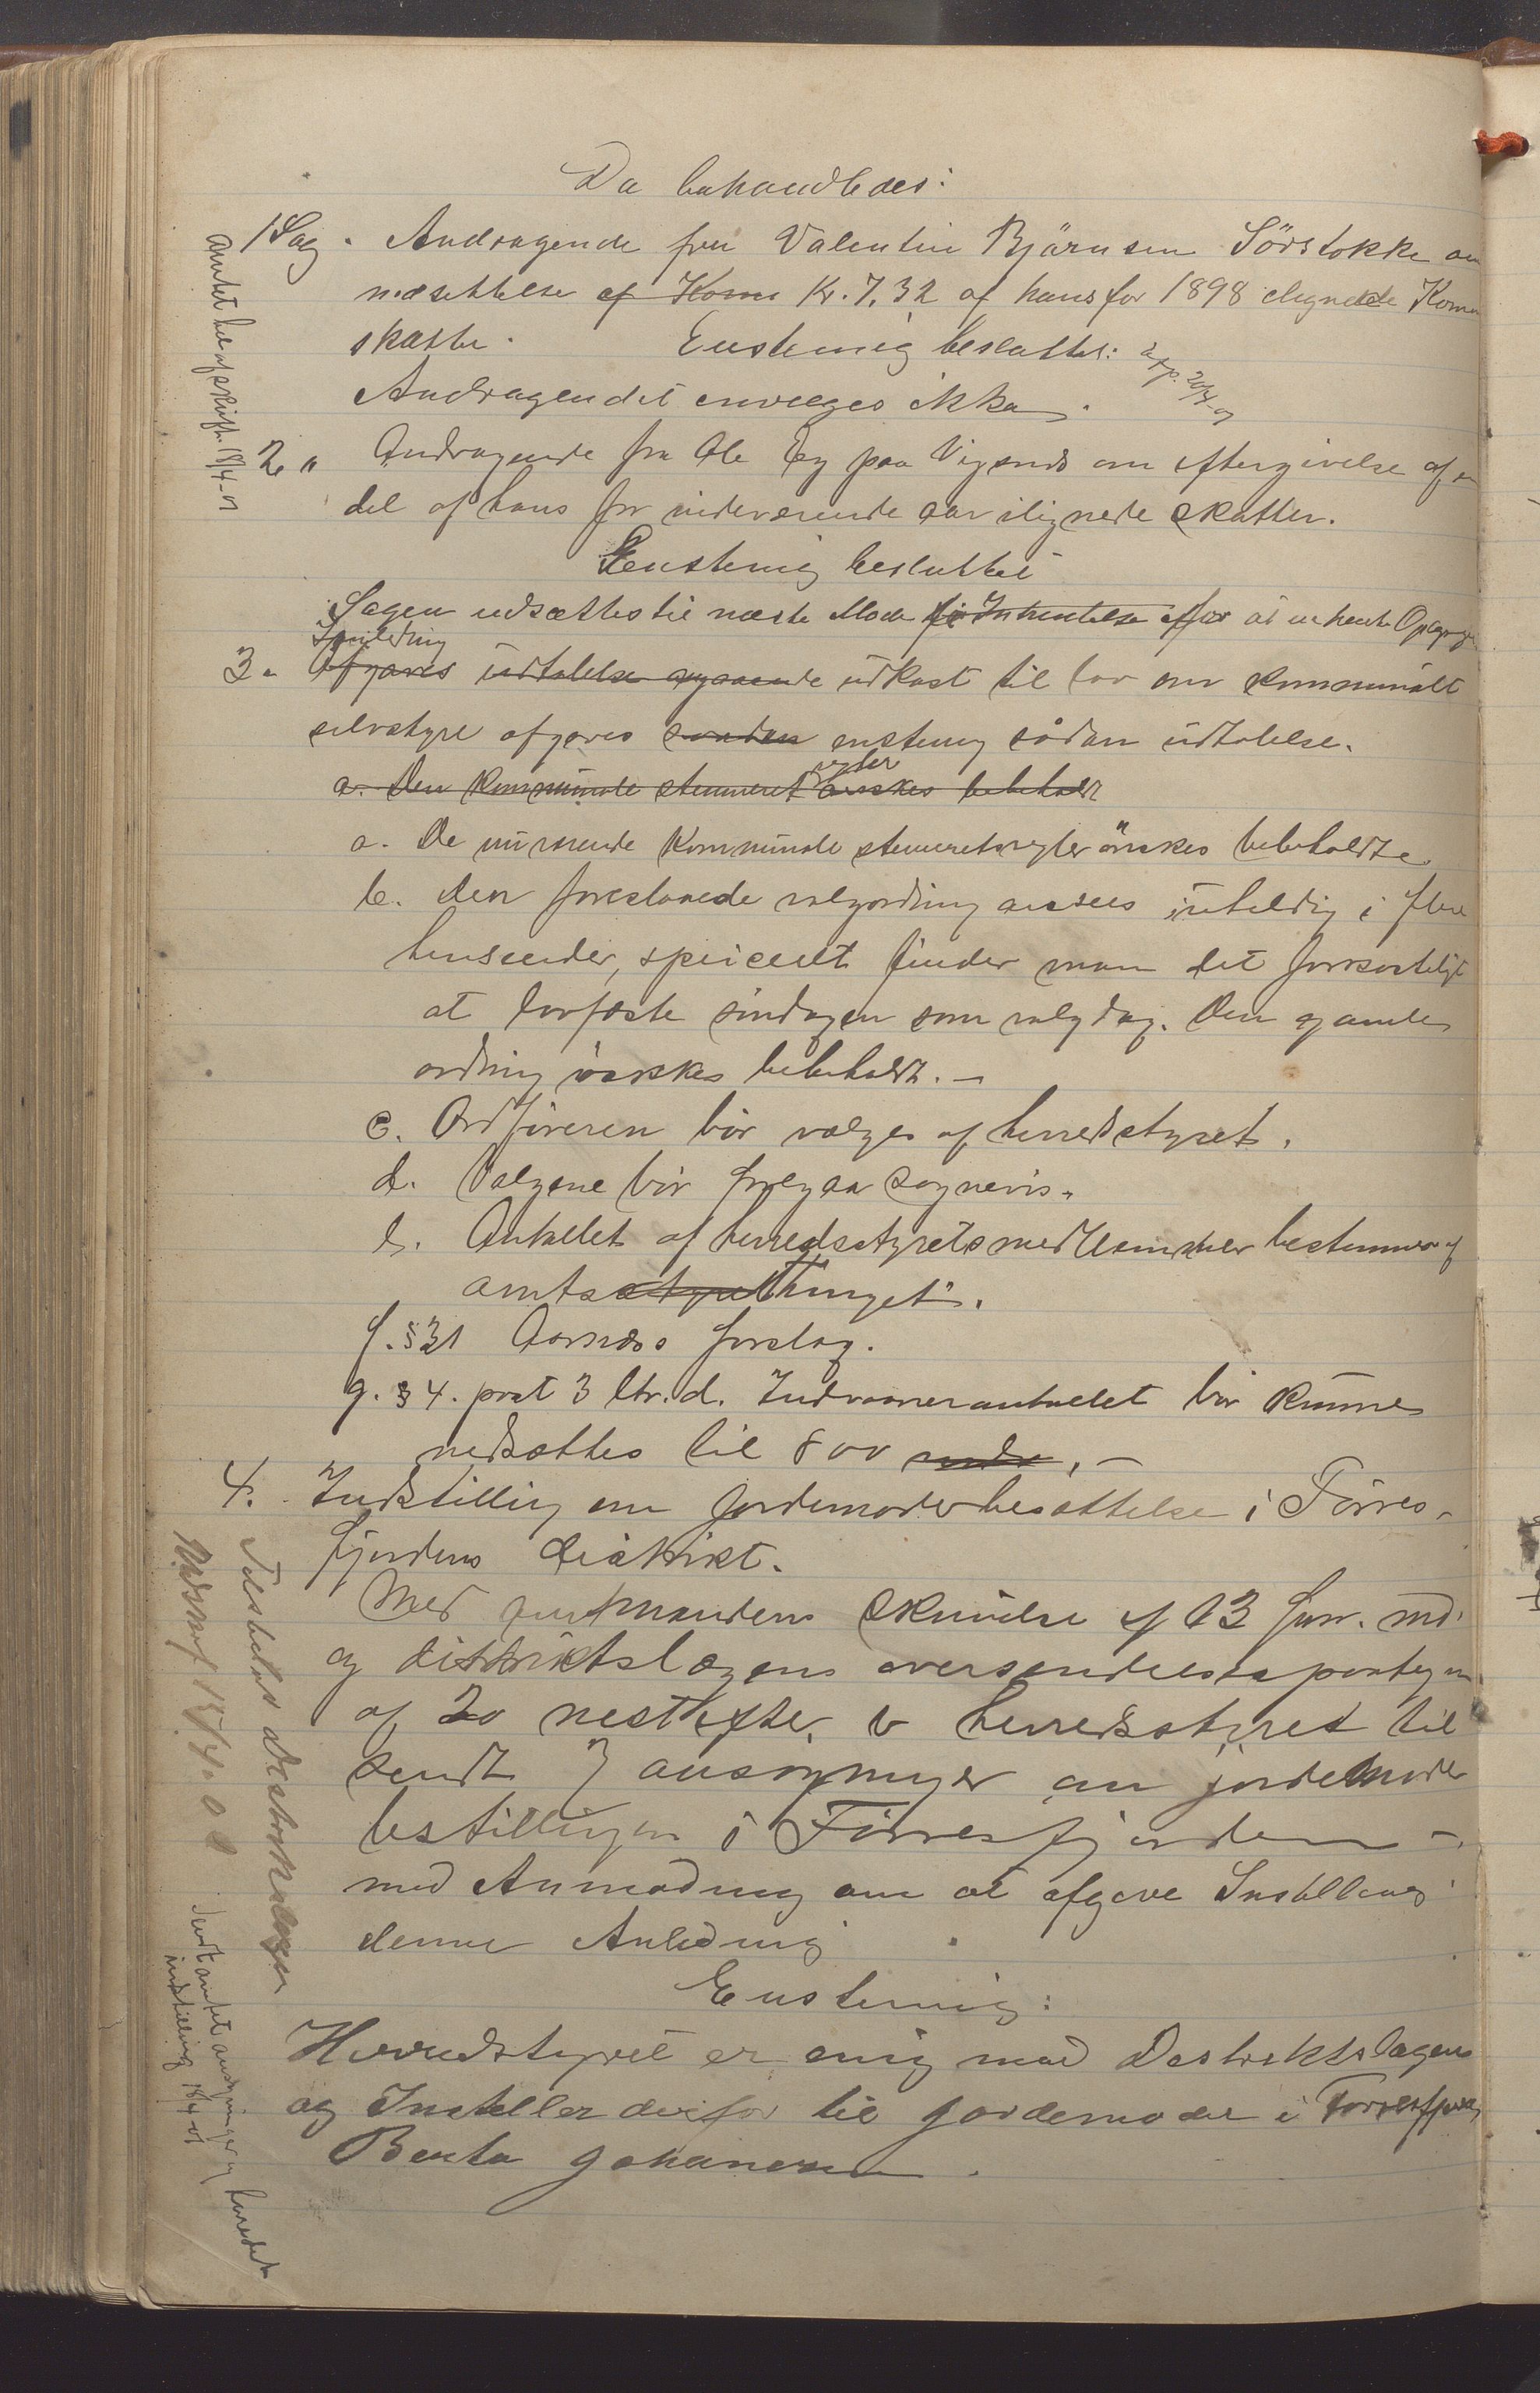 Da behandledes:
1 Sag. Andragende fra Valentin Bjärnsen Sörstokke om
nedsettelse af Kom Kr. 7,32 af hans for 1898 elignede Komm
skatte. Enstemig besluttet: exp. 20/4-01
Andragendet envilges ikke.
2 " Andragende fra Ole Eg paa Vigsnes om eftergivelse af en
del af hans for inderværende aar ilignede skatter.
Eenstemig besluttet
Sagen udsættes til næste Möde for Inhentelse af for at indhente Oplysn
I anledning
3. Afgaves udtalelse angaaende udkast til lov om kommunalt
selvstyre afgaves saadan enstemig sådan udtalelse.
regler
a. Den kommunale stemmeret önskes bebeholdt
a. De nuværende kommunale stemmeretsregler önskes bebeholdte.
b. Den foreslaaede valgordning ansees uheldig i flere
henseender, specielt finder man det forkasteligt
at lovfæste söndagen som valgdag. Den gamle
ordning önskes bebeholdt. –
c. Ordföreren bör vælges af herredsstyret.
d. Valgene bör foregaa sognevis.
e. Antallet af herredsstyretsmedlemmer bestemmes af
amtsstyret thinget.
f. § 31 Aarnæs forslag.
g. § 4. post 3 ltr. d. Indvaanerantallet bör kunne
nedsættes til 800 . –
4. Indstilling om jordemoderbesættelse i Förres-
fjordens distrikt.
Med amtmandens skrivelse af 13 Jan. md.
og distriktslægens oversendelsespaategn
af 20 nest efter, er herredsstyret til
sendt 7 ansögninger om jordemoder
bestillingen i Förresfjorden –
med Anmodning om at afgive Instilling i
denne Anledning
Enstemig:
Herredstyret er enig med Destrektslægen
og Insteller derfor til Jordemoder i Förresfjorden
Berta Johanesen.
Amtet tilafskrift. 18/4-01
Tilstelet distriktslægen
Udskrift 18/4-01
Sendt amtet ansögninger og herredets
indstilling 18/4-01